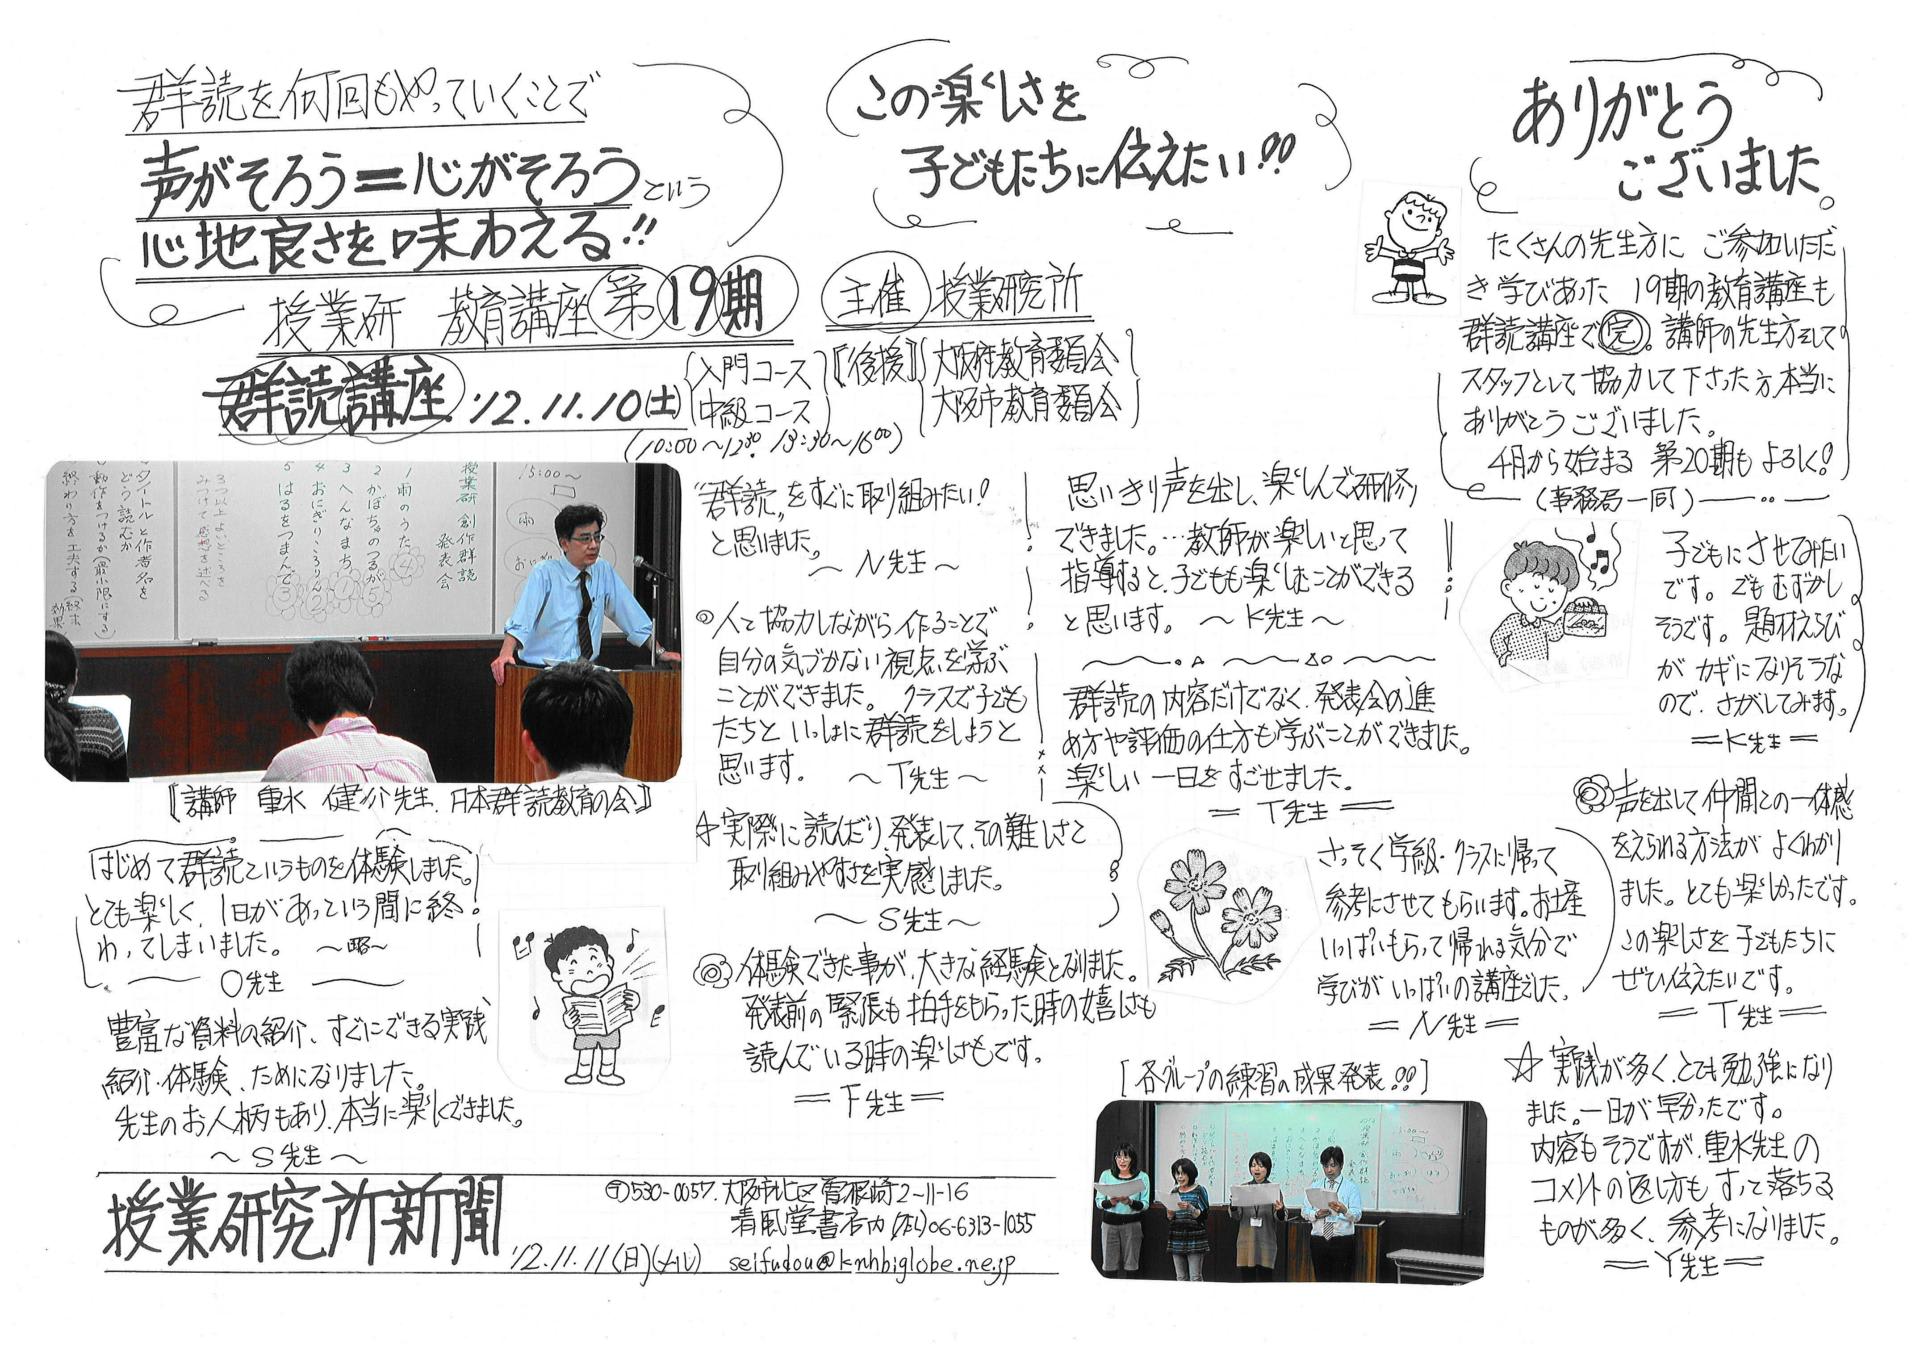 群読を何回もやっていくことで
声がそろう＝心がそろうという
心地良さを味わえる!!
授業研 教育講座 第19期
群読講座 '12.11.10(土)
入門コース
中級コース
(10:00〜12:30 13:30〜16:00)
主催 授業研究所
【後援】
大阪府教育委員会
大阪市教育委員会
この楽しさを
子どもたちに伝えたい!!
ありがとう
ございました。
たくさんの先生方に ご参加いただ
き学びあった 19期の教育講座も
群読講座で完。講師の先生方そして
スタッフとして協力して下さった方本当に
ありがとうございました。
4月から始まる 第20期も よろしく!
(事務局一同)
授業研 創作群読
発表会
1 雨のうた ④
2 かぼちゃのつるが ⑤
3 へんなまち ①
4 おにぎりころりん ②
5 はるをつまんで ③
3つ以上よいところを
みつけて感想を述べる
タイトルと作者名を
どう読むか
動作をつけるか(最小限にする)
終わり方を工夫する(終末効果)
15:00〜
雨
【講師 重水 健介先生. 日本群読教育の会】
はじめて群読というものを体験しました。
とても楽しく、1日があっという間に終
わってしまいました。 〜略〜
O先生
豊富な資料の紹介、すぐにできる実践
紹介・体験、ためになりました。
先生のお人柄もあり、本当に楽しくできました。
〜S先生〜
"群読"をすぐに取り組みたい!
と思いました。
〜N先生〜
◎人と協力しながら作ることで
自分の気づかない視点を学ぶ
ことができました。クラスで子ども
たちといっしょに群読をしようと
思います。 〜T先生〜
☆実際に読んだり、発表して、その難しさと
取り組みやすさを実感しました。
〜S先生〜
◎体験できた事が、大きな経験となりました。
発表前の緊張も拍手をもらった時の嬉しさも
読んでいる時の楽しさもです。
＝F先生＝
思いきり声を出し、楽しんで研修
できました。…教師が楽しいと思って
指導すると、子どもも楽しむことができる
と思います。 〜K先生〜
群読の内容だけでなく、発表会の進
め方や評価の仕方も学ぶことができました。
楽しい一日をすごせました。
＝T先生＝
さっそく学級・クラスに帰って
参考にさせてもらいます。お土産
いっぱいもらって帰れる気分で
学びがいっぱいの講座でした。
＝N先生＝
[各グループの練習の成果発表!!]
子どもにさせてみたい
です。でもむずかし
そうです。題材えらび
がカギになりそうな
ので、さがしてみます。
＝K先生＝
◎声を出して仲間との一体感
をえられる方法がよくわかり
ました。とても楽しかったです。
この楽しさを子どもたちに
ぜひ伝えたいです。
＝T先生＝
☆実践が多く、とても勉強になり
ました。一日が早かったです。
内容もそうですが、重水先生の
コメントの返し方もすっと落ちる
ものが多く、参考になりました。
＝Y先生＝
授業研究所新聞
〒530-0057. 大阪市北区曽根崎2-11-16
清風堂書店内 (TEL)06-6313-1055
'12.11.11(日)(メール) seifudou@knhbiglobe.ne.jp